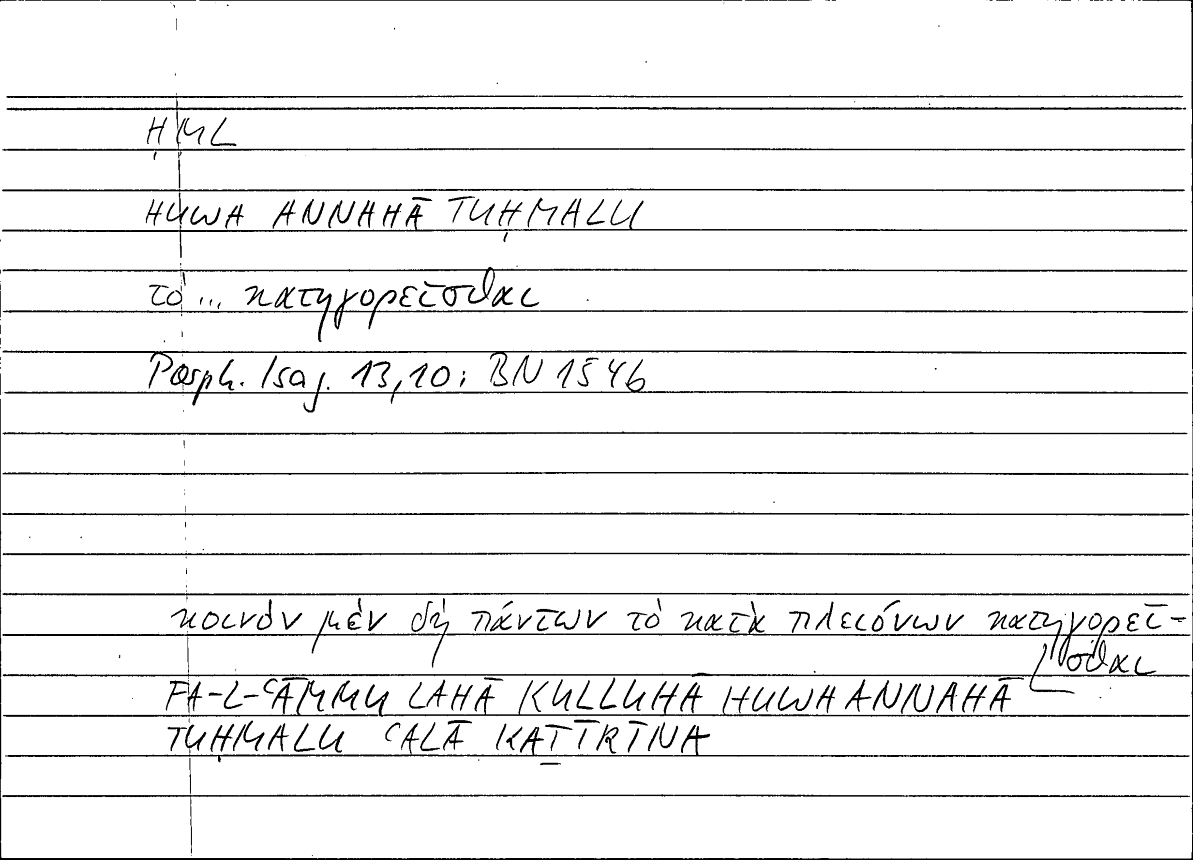 ḤML
HUWA ANNAHĀ TUḤMALU
τὸ ... κατηγορεῖσθαι
Porph. Isag. 13,10: BN 154b
κοινὸν μὲν δὴ πάντων τὸ κατὰ πλειόνων κατηγορεῖ-
σθαι
FA-L-ʿĀMMU LAHĀ KULLUHĀ HUWA ANNAHĀ
TUḤMALU ʿALĀ KAṮĪRĪNA